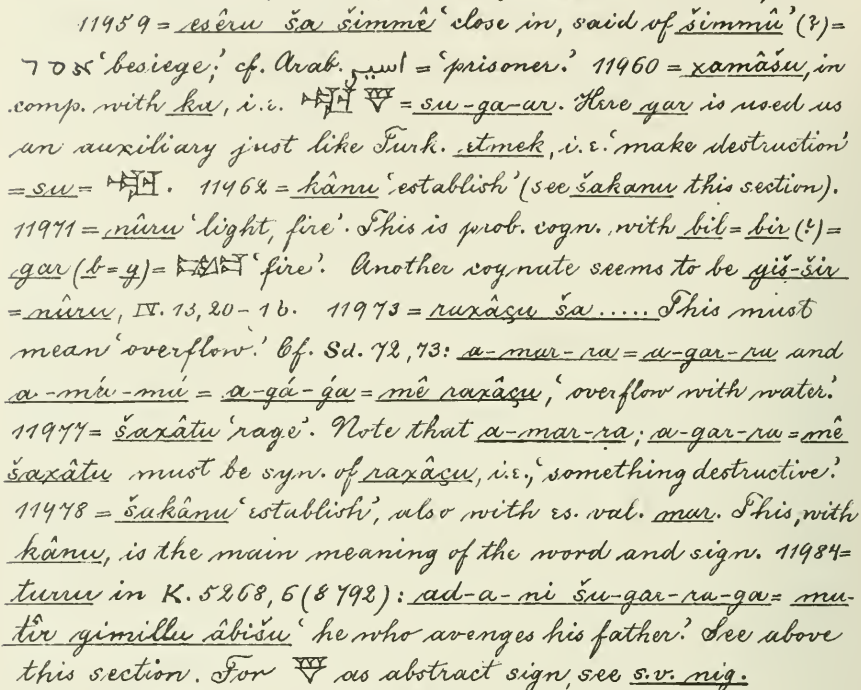 11959 = esêru ša šimmê 'close in, said of šimmû' (?) =
אסר 'besiege;' cf. Arab. اسير = 'prisoner.' 11960 = xamâšu, in
comp. with ku, i.e. = su-ga-ar. Here gar is used us
an auxiliary just like Turk. etmek, i.e. 'make destruction'
= su = . 11962 = kânu 'establish' (see šakanu this section).
11971 = nûru 'light, fire'. This is prob. cogn. with bil = bir (?) =
gar (b = g) = 'fire'. Another cognate seems to be giš-šir
= nûru, IV. 13, 20-1b. 11973 = raxâçu ša ..... This must
mean 'overflow.' Cf. Sd. 72, 73: a-mar-ra = a-gar-ra and
a-má-mú = a-gá-ġa = mê raxâçu, 'overflow with water.'
11977 = šaxâtu 'rage'. Note that a-mar-ra; a-gar-ra = mê
šaxâtu must be syn. of raxâçu, i.e., 'something destructive.'
11978 = šakânu 'establish', also with es. val. mar. This, with
kânu, is the main meaning of the word and sign. 11984 =
turru in K. 5268, 6 (8792): ad-a-ni šu-gar-ra-ga = mu-
tîr gimillu âbišu 'he who avenges his father.' See above
this section. For 𒐼 as abstract sign, see s.v. nig.